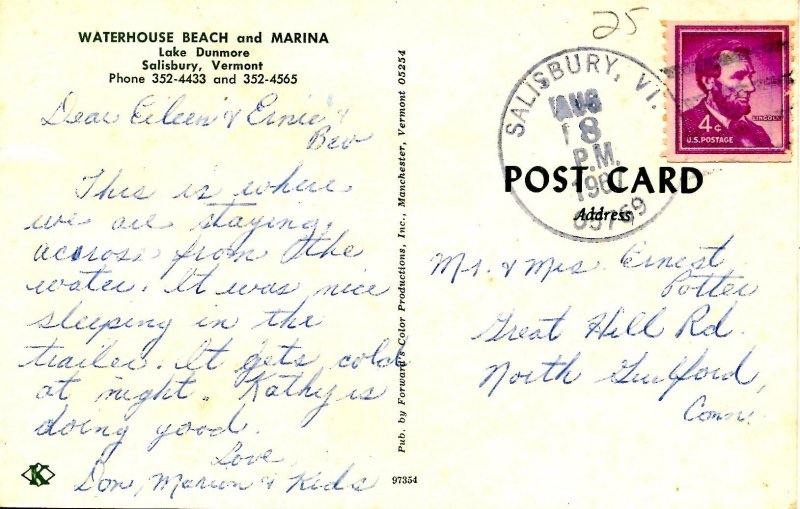 WATERHOUSE BEACH and MARINA
Lake Dunmore
Salisbury, Vermont
Phone 352-4433 and 352-4565
Dear Eileen & Ernie &
Bev
This is where
we are staying,
across from the
water. It was nice
sleeping in the
trailer. It gets cold
at night. Kathy is
doing good.
Love
Don, Marion & Kids
K
97354
Pub. by Forward's Color Productions, Inc., Manchester, Vermont 05254
25
SALISBURY, VT.
AUG
8
P.M.
05769
LINCOLN
4¢
U.S. POSTAGE
POST CARD
Address
Mr. & Mrs. Ernest
Potter
Great Hill Rd.
North Guilford,
Conn.